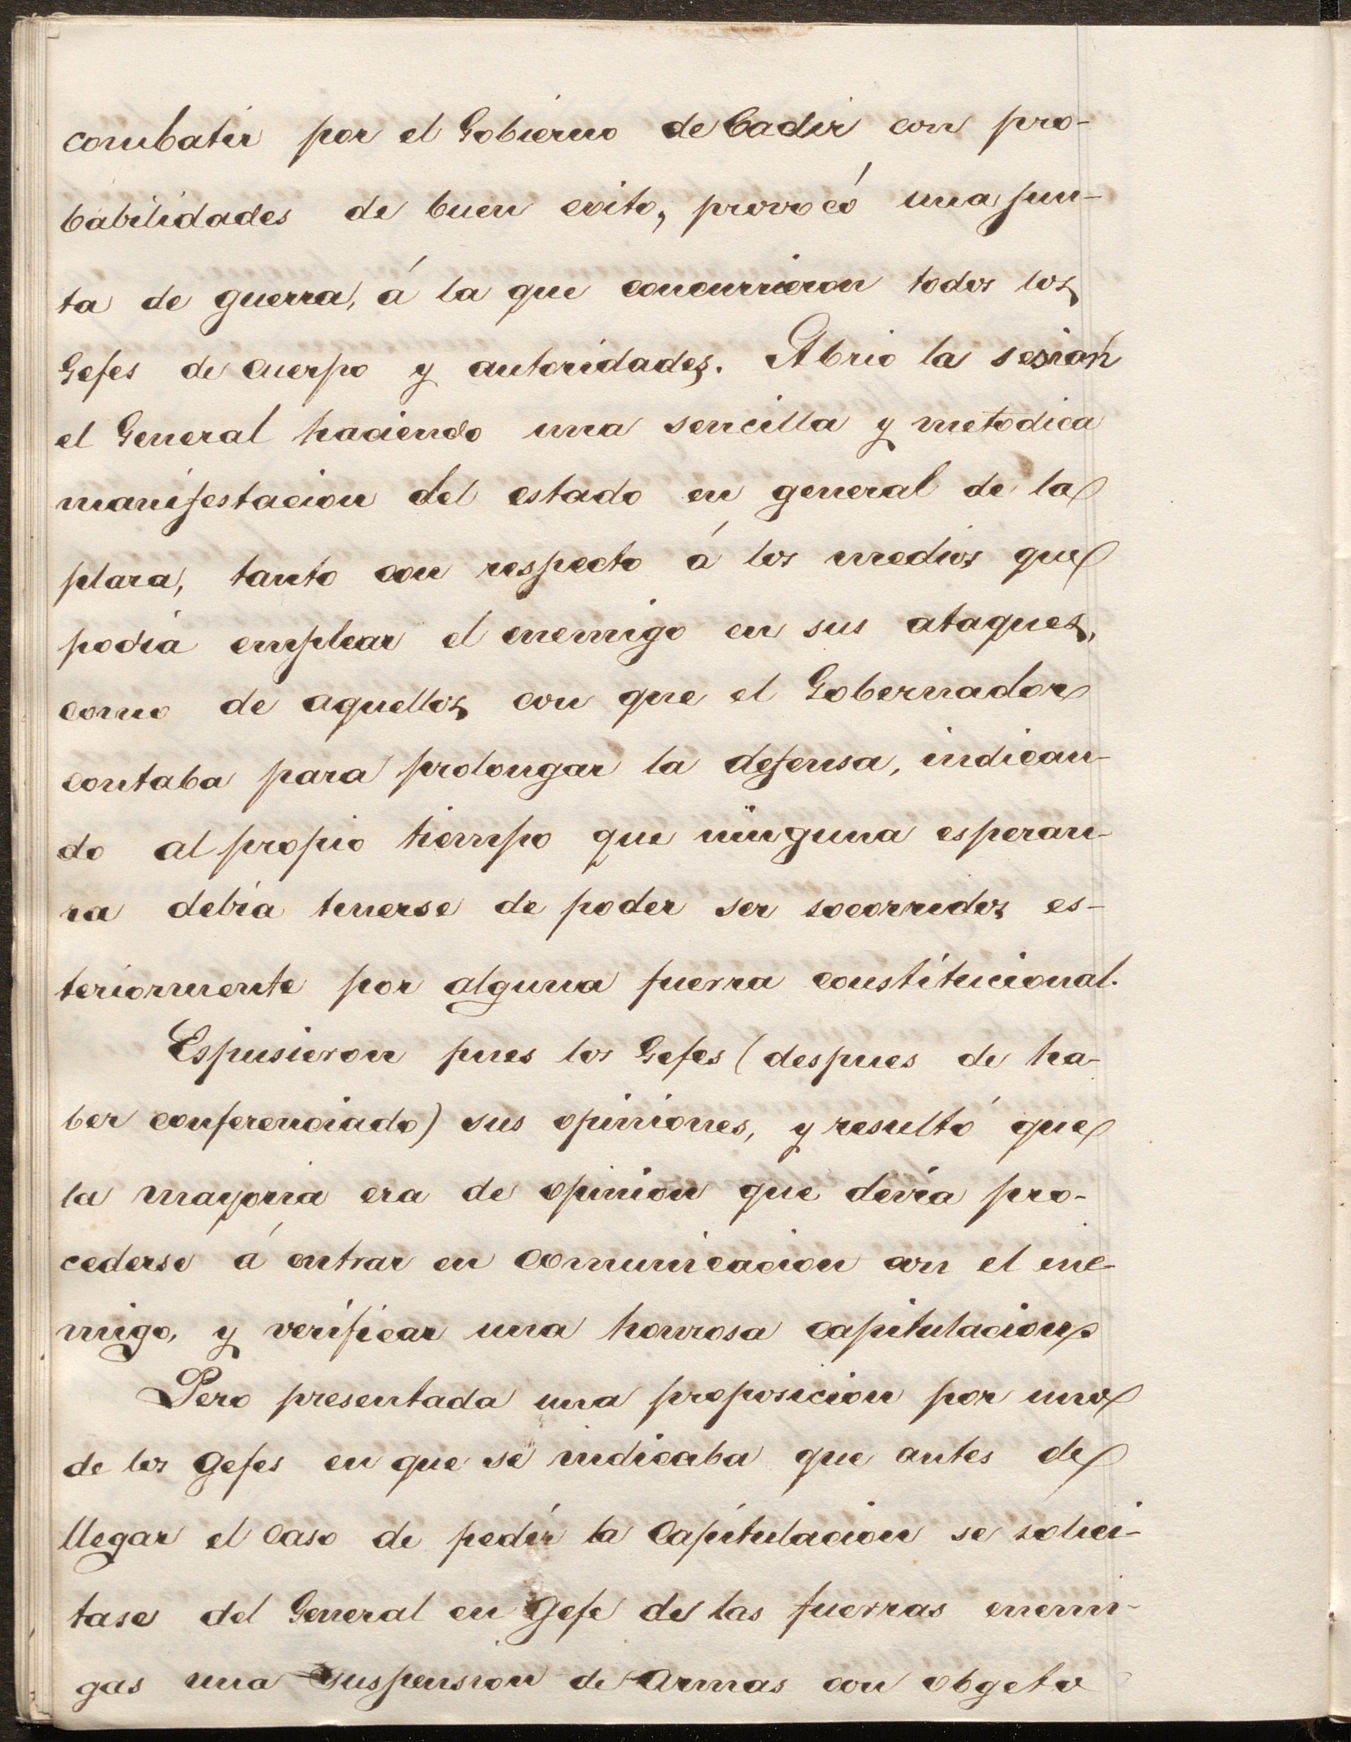 combatir por el Gobierno de Cadir con pro-
babilidades de buen exito, provocó una jun-
ta de guerra, á la que concurrieron todos los
Gefes de cuerpo y autoridades. Abrio la sesion
el General haciendo una sencilla y metodica
manifestacion del estado en general de la
plara, tanto con respecto á los medios que
podia emplear el enemigo en sus ataques,
como de aquellos con que el Gobernador
contaba para prolongar la defensa, indican-
do al propio tiempo que ninguna esperan-
ra debia tenerse de poder ser socorridos es-
teriormente por alguna fuerra constitucional.
Espusieron pues los Gefes (despues de ha-
ber conferenciado) sus opiniones, y resultó que
la mayoria era de opinion que devia pro-
cederse á entrar en comunicacion con el ene-
migo, y verificar una honrosa capitulacion.
Pero presentada una proposicion por uno
de los Gefes en que se indicaba que antes de
llegar el caso de pedir la Capitulacion se solici-
tase del General en Gefe de las fuerras enemi-
gas una suspension de armas con obgeto